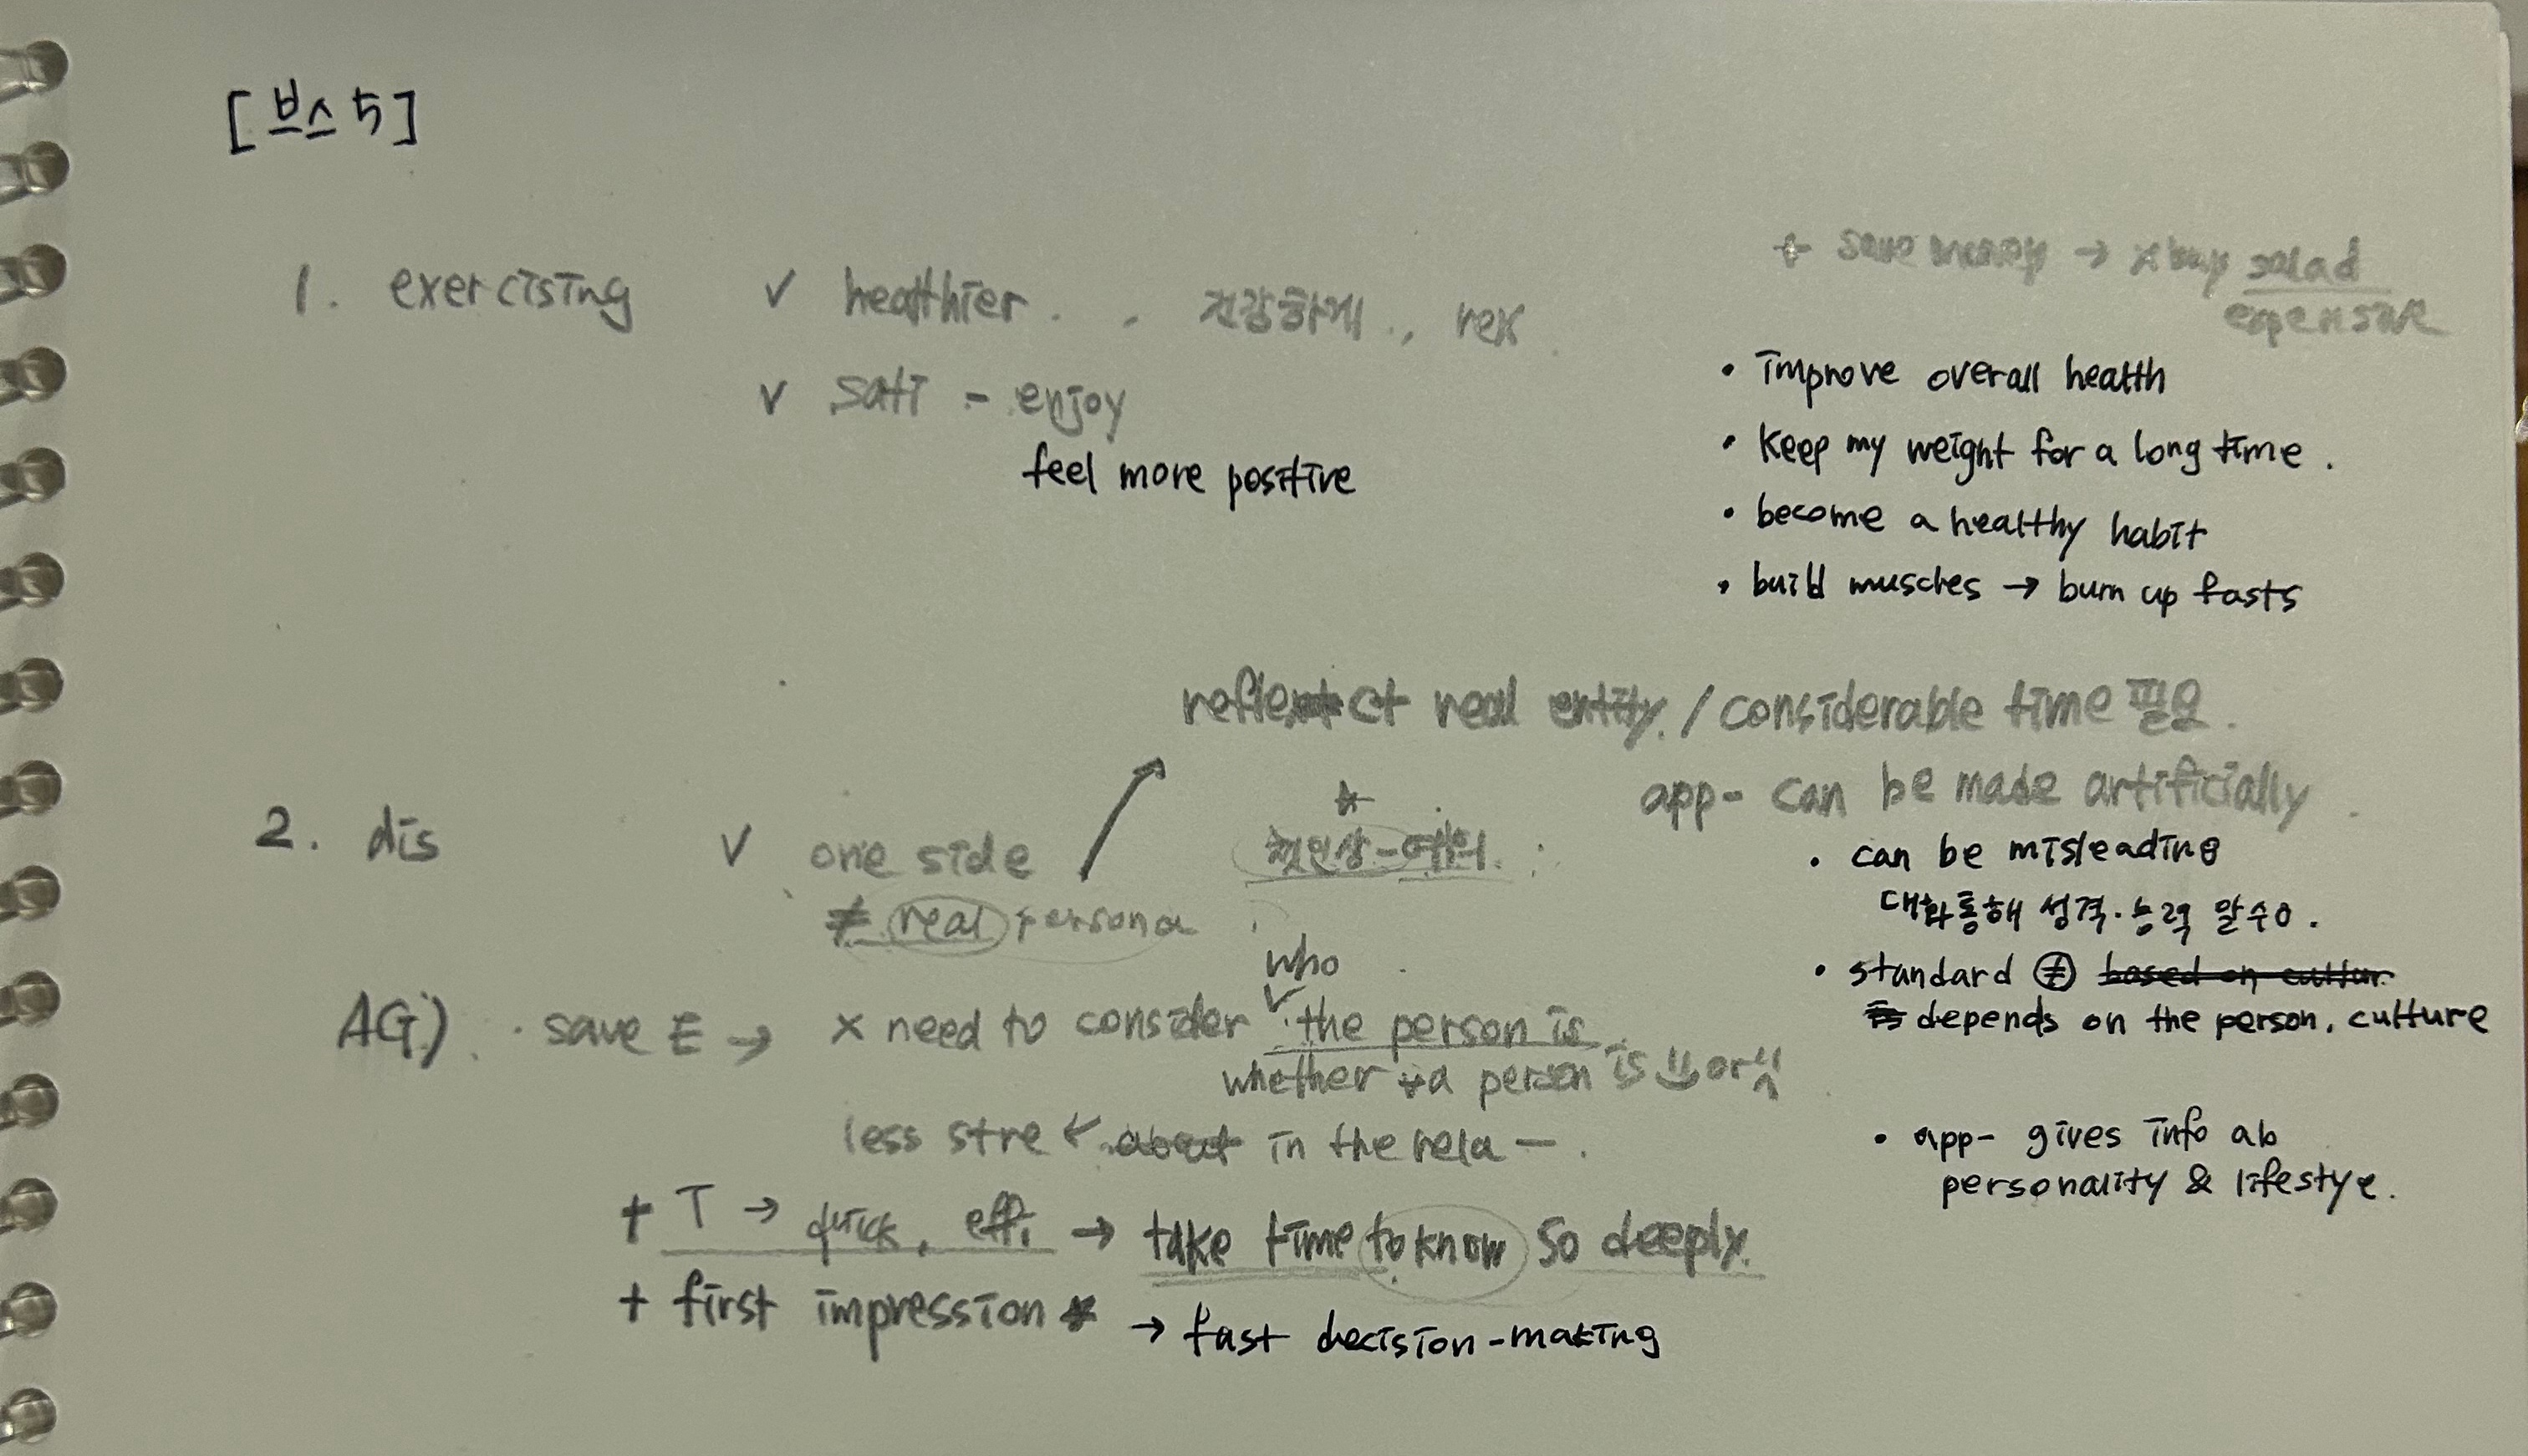 [브스 5]
+ save money → x buy salad
expensive
1. exercising ✓ healthier . . 건강하게 . ,
✓ sati - enjoy
feel more positive
• improve overall health
• keep my weight for a long time .
• become a healthy habit
• build muscles → burn up fasts
reflect real entity. / considerable time 필요 .
app- can be made artificially .
2. dis ✓ one side
≠ real persona
첫인상 -
• can be misleading
대화통해 성격·능력 알수o .
• standard ≠ based on cultur
depends on the person, culture
AG) · save E → x need to consider who the person is
whether a person is or
less stre ← about in the rela — .
• app- gives info ab
personality & lifestye.
+ T → quick, effi → take time to know so deeply.
+ first impression → fast decision-making